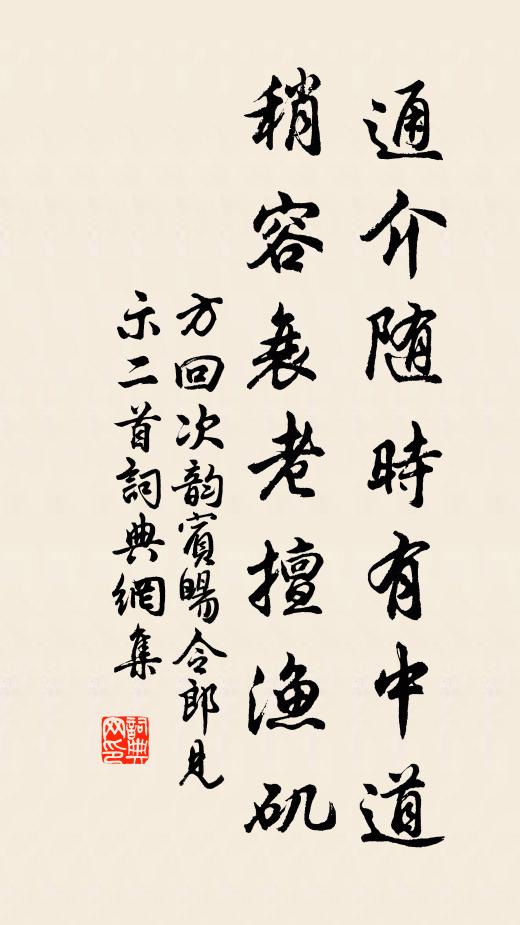 通介随時有中道
稍容衰老擅漁矶
方回次韵賓暘令郎見
示二首詞典網集
詞典
网印